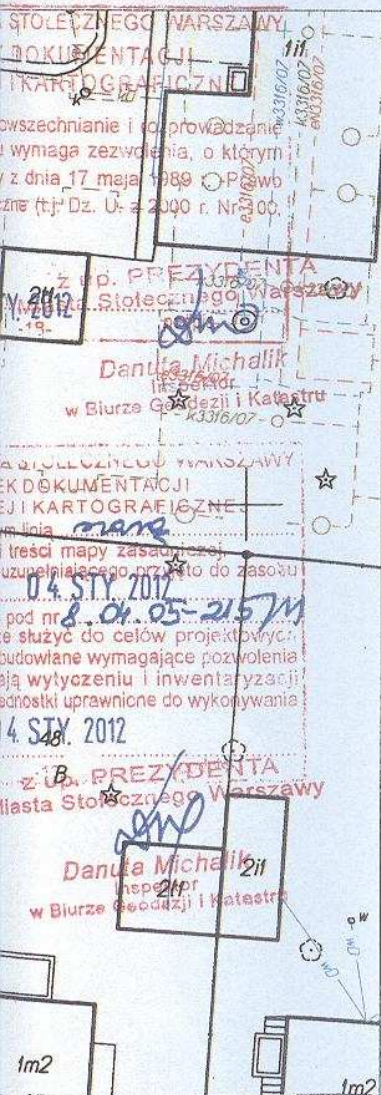 STOŁECZNEGO WARSZAWY
DOKUMENTACJI
I KARTOGRAFICZN
1i1
k3316/07
k3316/07
eN3316/07
owszechnianie i rozprowadzanie
wymaga zezwolenia, o którym
y z dnia 17 maja 1989 r. - Prawo
czne (t.j. Dz. U. z 2000 r. Nr 100,
e3316/07
z up. PREZYDENTA
Miasta Stołecznego Warszawy
Y. 2012
2t1
-19-
Danuta Michalik
Inspektor
w Biurze Geodezji i Katastru
k3316/07
A STOŁECZNEGO WARSZAWY
EK DOKUMENTACJI
EJ I KARTOGRAFICZNE
linią
i treści mapy zasadniczej
uzupełniającego przyjęto do zasobu
0 4. STY. 2012
pod nr 8.04.05-215/12
że służyć do celów projektowych
budowlane wymagające pozwolenia
ają wytyczeniu i inwentaryzacji
ednostki uprawnione do wykonywania
4. STY. 2012
48
B
z up. PREZYDENTA
Miasta Stołecznego Warszawy
Danuta Michalik
Inspektor
w Biurze Geodezji i Katastru
2t1
2i1
w
wD
wD
1m2
1m2